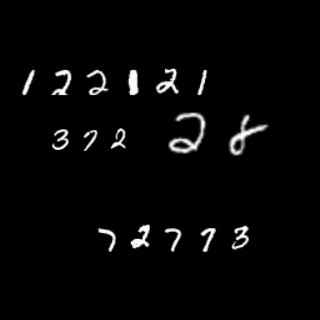 122121
372 28
72773